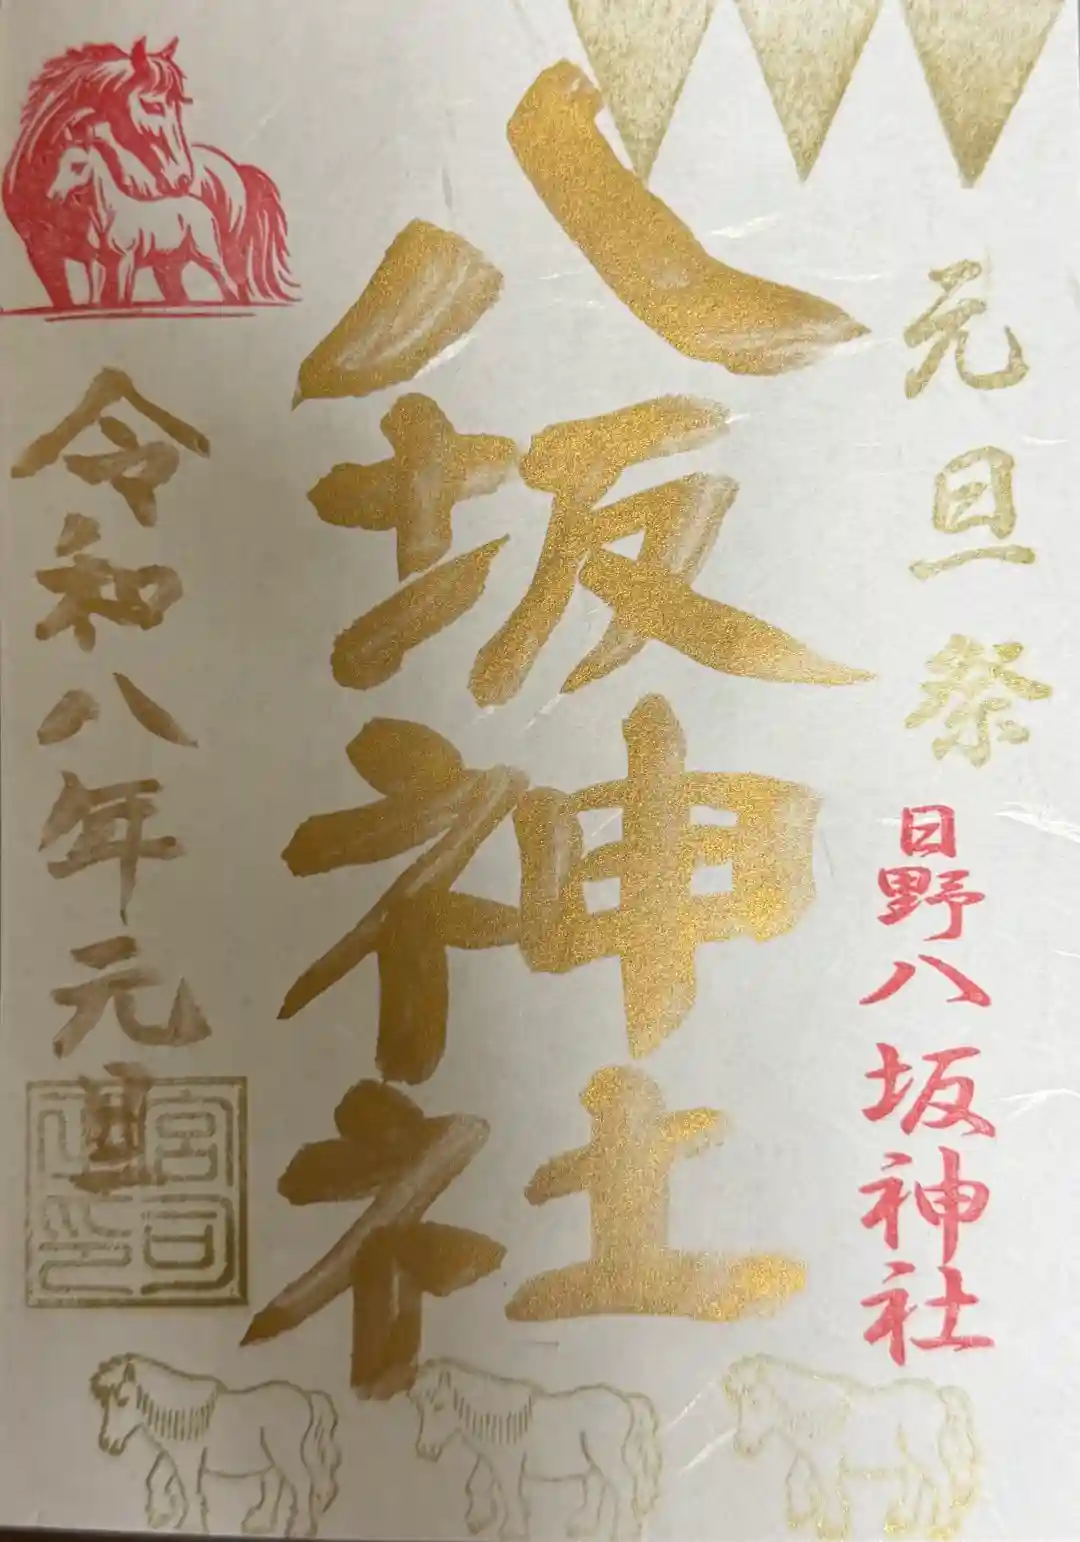 元旦祭
日野八坂神社
八坂神社
令和八年元旦
宮司之印